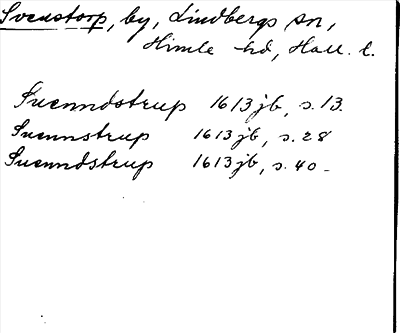 Svenstorp, by, Lindbergs sn,
Himle hd, Hall. l.
Suenndstrup 1613 jb, s. 13.
Suennstrup 1613 jb, s. 28
Suenndstrup 1613 jb, s. 40 -